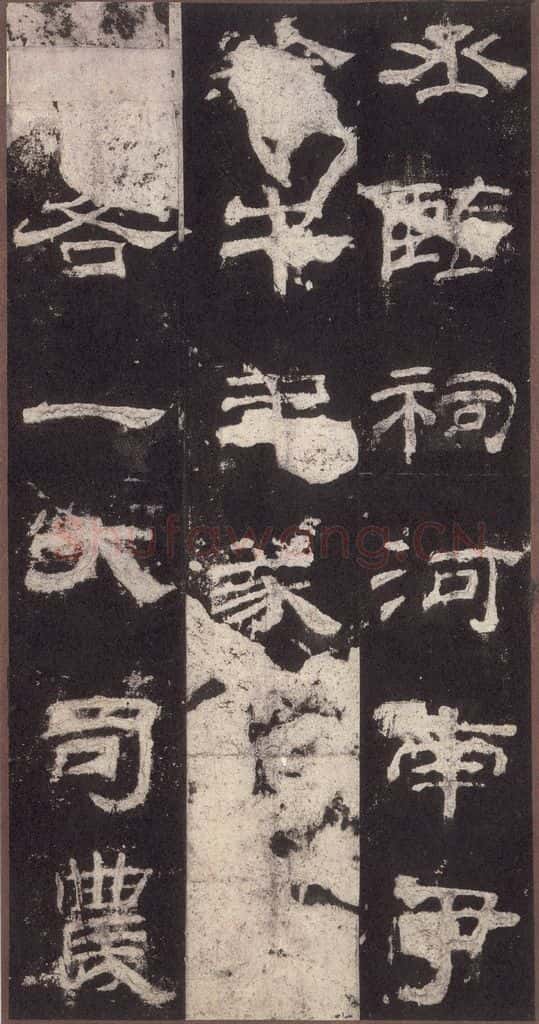 丞監祠河南尹
牛羊豕
各一大司農
Shufawang.CN